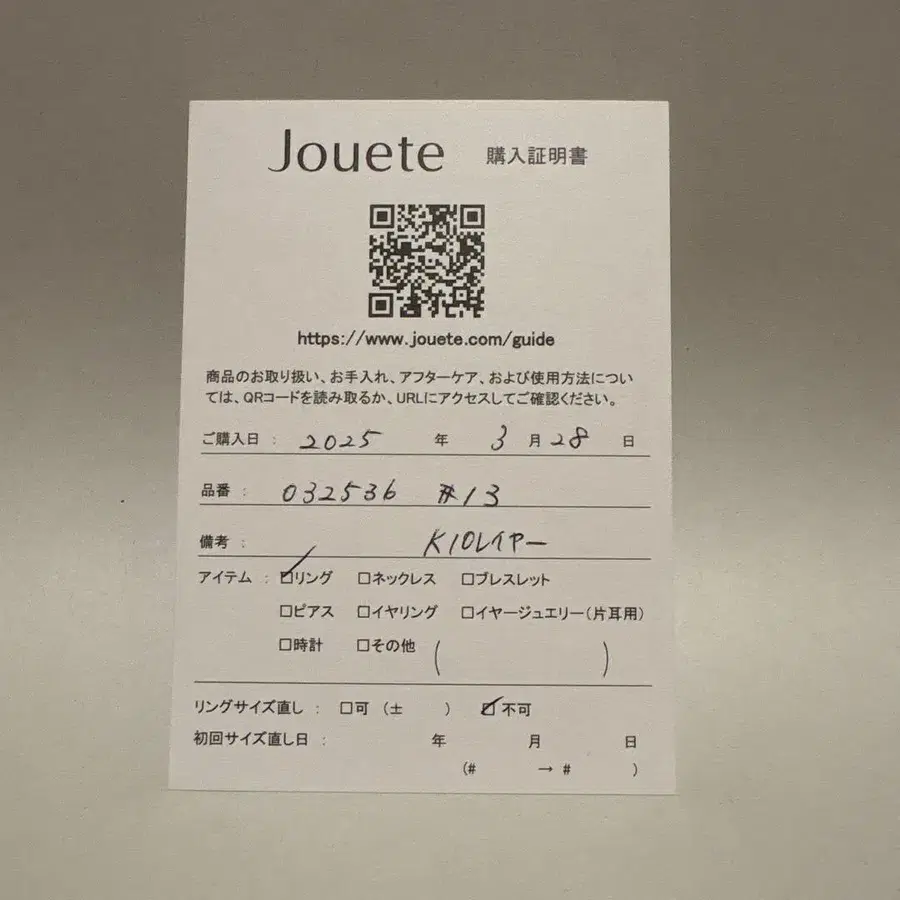 Jouete 購入証明書
https://www.jouete.com/guide
商品のお取り扱い、お手入れ、アフターケア、および使用方法につい
ては、QRコードを読み取るか、URLにアクセスしてご確認ください。
ご購入日 : 2025 年 3 月 28 日
品番 : 032536 #13
備考 : K10レイヤー
アイテム : ☑リング □ネックレス □ブレスレット
□ピアス □イヤリング □イヤージュエリー(片耳用)
□時計 □その他 ( )
リングサイズ直し : □可 (± ) ☑不可
初回サイズ直し日 : 年 月 日
(# → # )